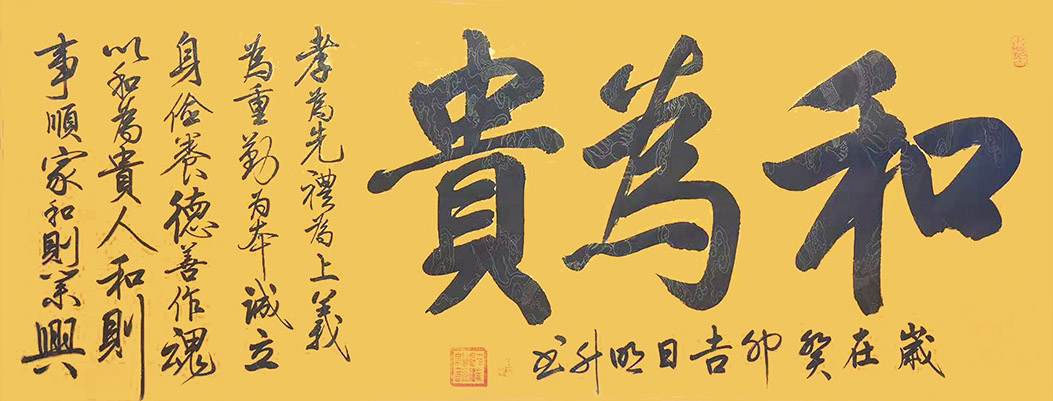 和為貴
歲在癸卯吉日明升书
孝為先禮為上義
為重勤为本誠立
身俭養德善作魂
以和為貴人和則
事順家和則業興